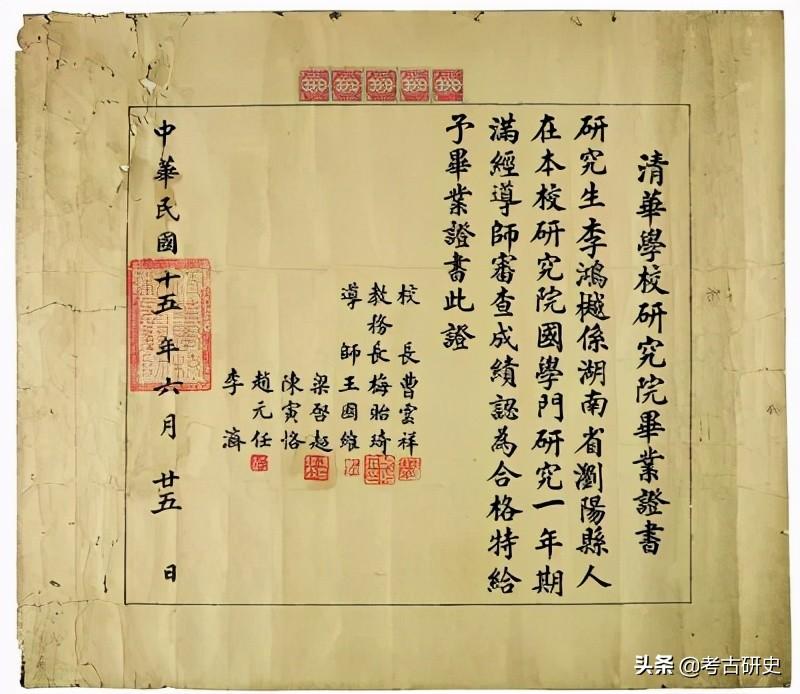 清華學校研究院畢業證書
研究生李鴻樾係湖南省瀏陽縣人
在本校研究院國學門研究一年期
滿經導師審查成績認為合格特給
予畢業證書此證
校長曹雲祥
教務長梅貽琦
導師王國維
梁啓超
陳寅恪
趙元任
李濟
中華民國十五年六月廿五日
头条 @考古研史